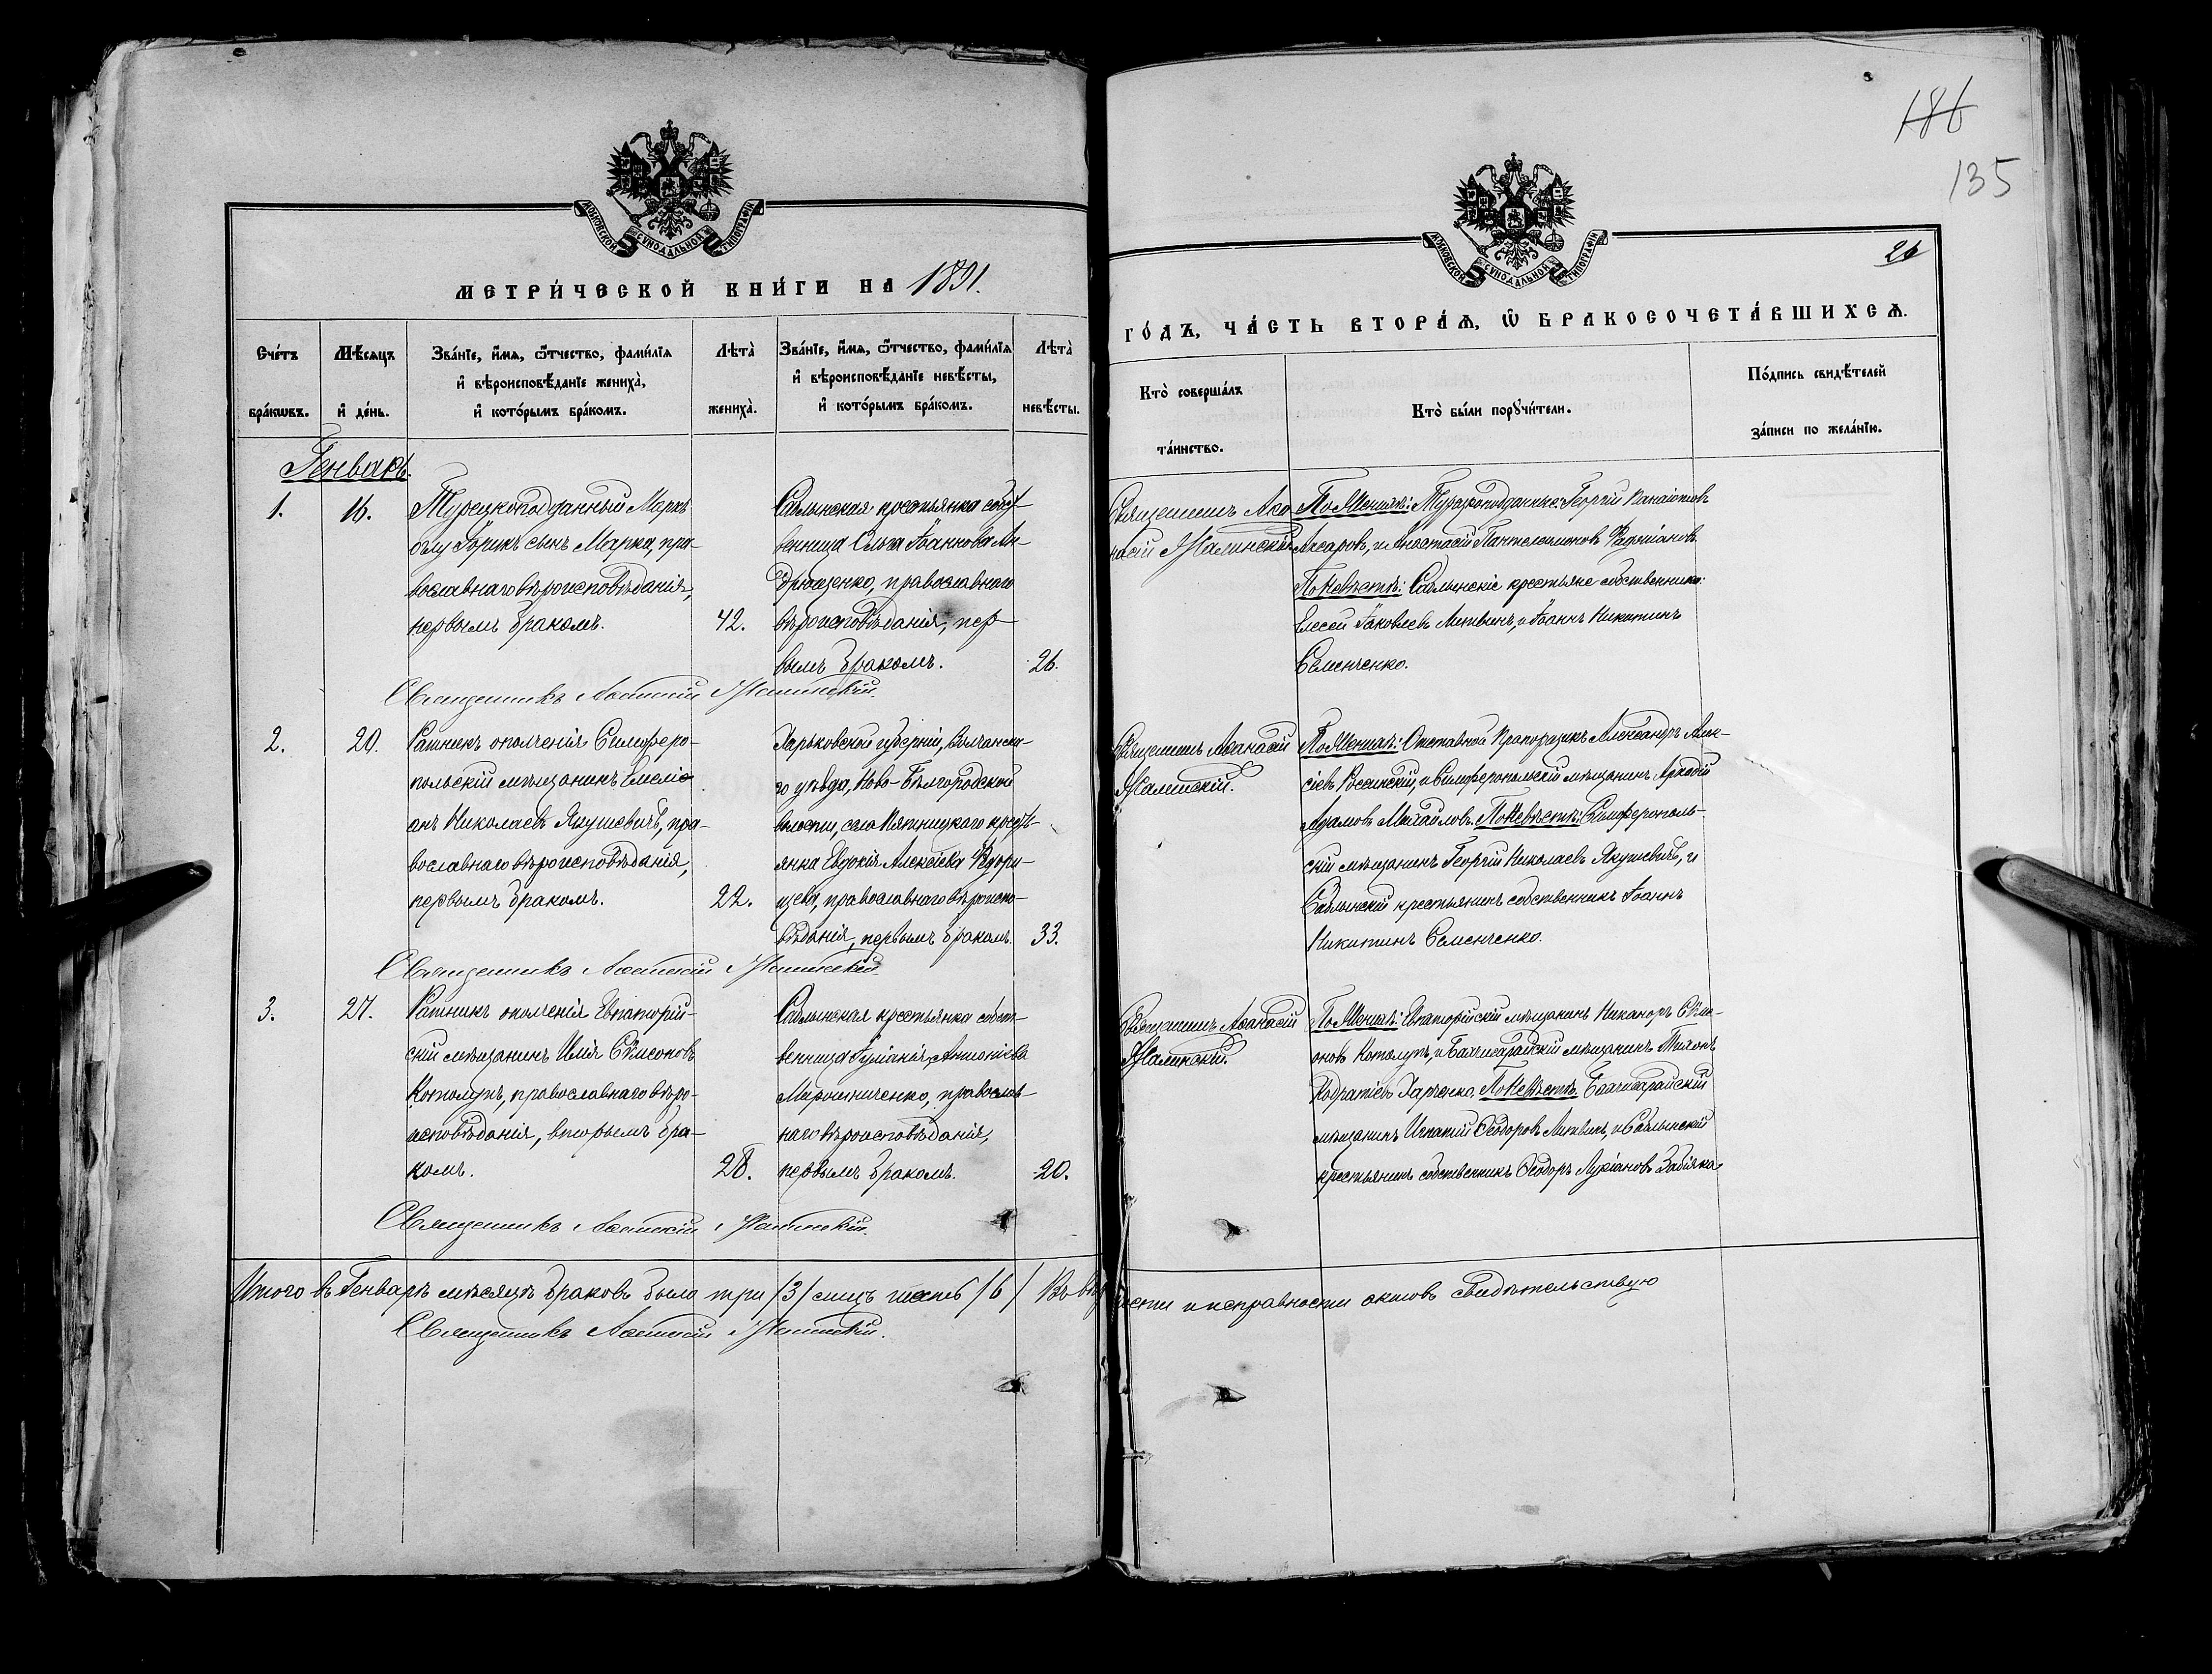 186
135
26
МОСКОВСКОЙ СѴНОДАЛЬНОЙ ТИПОГРАФІИ
МОСКОВСКОЙ СѴНОДАЛЬНОЙ ТИПОГРАФІИ
МЕТРИ́ЧЕСКОЙ КНИ́ГИ НА 1891.
ГО́ДЪ, ЧА́СТЬ ВТОРА́Ѧ, Ѡ҆ БРАКОСОЧЕТА́ВШИХСѦ.
Сче́тъ бра́кѡвъ.
Мѣ́сѧцъ и҆ де́нь.
Зва́нїе, и҆́мѧ, ѻ҆́тчество, фами́лїѧ
и҆ вѣроисповѣ́данїе жениха̀,
и҆ кото́рымъ бра́комъ.
Лѣта̀ жениха̀.
Зва́нїе, и҆́мѧ, ѻ҆́тчество, фами́лїѧ
и҆ вѣроисповѣ́данїе невѣ́сты,
и҆ кото́рымъ бра́комъ.
Лѣта̀ невѣ́сты.
Кто̀ соверша́лъ
та́инство.
Кто̀ бы́ли порꙋчи́тели.
По́дпись свидѣ́телей
за́писи по жела́нїю.
Генварь.
1.
16.
Турецкоподданный Маркъ
оглу Іорикъ сынъ Марка, пра-
вославнаго вѣроисповѣданія,
первымъ бракомъ.
42.
Саблынская крестьянка собст-
венница Ольга Іоаннова Ан-
дрющенко, православнаго
вѣроисповѣданія, пер-
вымъ бракомъ.
26.
Священникъ Аѳа-
насій Жалинскій
По Женихѣ: Турецкоподданные: Георгій Панаіотовъ
и Анастасій Пантелеимоновъ
По Невѣстѣ: Саблынскіе крестьяне собственники:
Елесей Іаковлевъ Литвинъ, и Іоаннъ Никитинъ
Семенченко.
Священникъ Аѳанасій Жалинскій.
2.
20.
Ратникъ ополченія Симферо-
польскій мѣщанинъ Емелі-
анъ Николаевъ Якушевичъ, пра-
вославнаго вѣроисповѣданія,
первымъ бракомъ.
22.
Харьковской губерніи, Волчанска-
го уѣзда, Ново-Бѣлгородской
волости, села Пятницкаго кресть-
янка Евдокія Алексіева
православнаго вѣроиспо-
вѣданія, первымъ бракомъ.
33.
Священникъ Аѳанасій
Жалинскій.
По Женихѣ: Отставной Прапорщикъ Александръ Алек-
сіевъ и Симферопольскій мѣщанинъ Аркадій
Адамовъ Михайловъ. По Невѣстѣ: Симферополь-
скій мѣщанинъ Георгій Николаевъ Якушевичъ, и
Саблынскій крестьянинъ собственникъ Іоаннъ
Никитинъ Семенченко.
Священникъ Аѳанасій Жалинскій
3.
27.
Ратникъ ополченія Евпаторій-
скій мѣщанинъ Илія Сѵмеоновъ
Котолупъ, православнаго вѣро-
исповѣданія, вторымъ бра-
комъ.
28.
Саблынская крестьянка собст-
венница Іуліанія Антоніева
Мирошниченко, православ-
наго вѣроисповѣданія,
первымъ бракомъ.
20.
Священникъ Аѳанасій
Жалинскій.
По Женихѣ: Евпаторійскій мѣщанинъ Никаноръ Сѵме-
оновъ Котолупъ, и Бахчисарайскій мѣщанинъ Тихонъ
Кодратіевъ Харченко. По Невѣстѣ: Бахчисарайскій
мѣщанинъ Игнатій Ѳеодоровъ Литвинъ, и Саблынскій
крестьянинъ собственникъ Ѳеодоръ Лукіановъ Забіяка.
Священникъ Аѳанасій Жалинскій.
Итого въ Генварѣ мѣсяцѣ браковъ было три /3/ лицъ шесть /6/ Въ вѣр ности и исправности актовъ свидѣтельствую
Священникъ Аѳанасій Жалинскій.